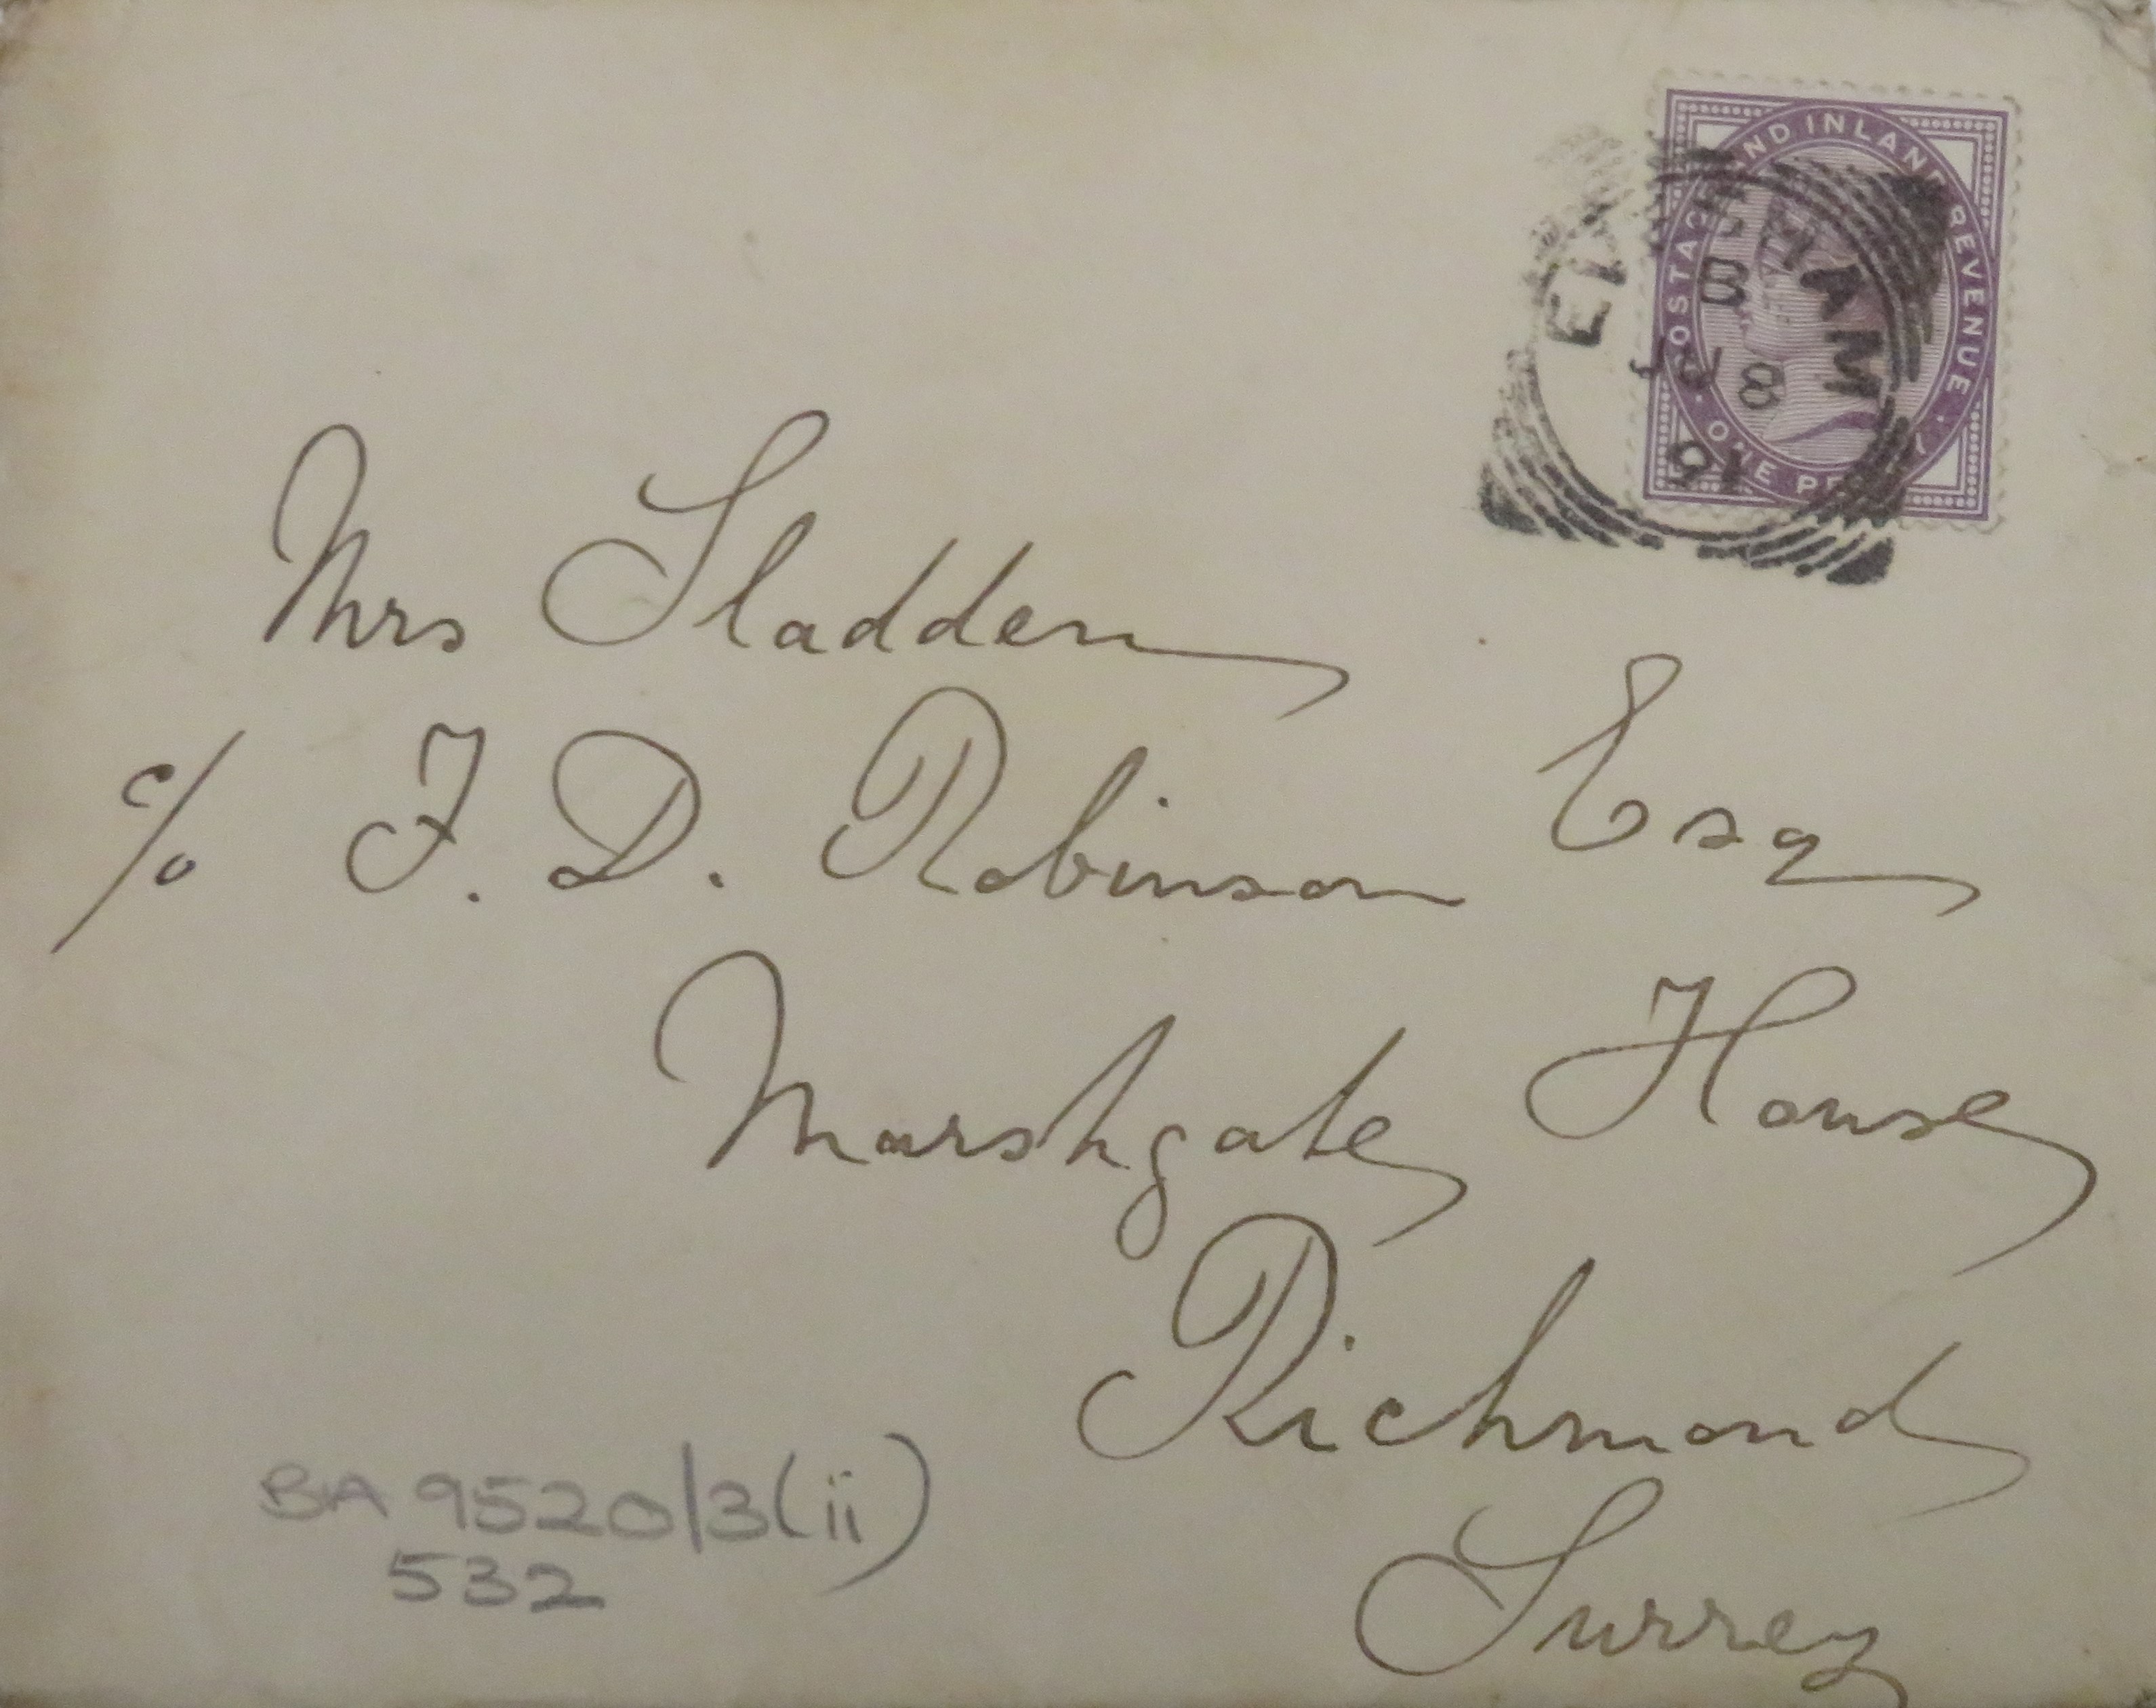 POSTAGE AND INLAND REVENUE
ONE
EVESHAM
B
JU 8
91
Mrs Sladden
c/o F. D. Robinson Esq
Marshgate House
Richmond
Surrey
BA 9520/3(ii)
532